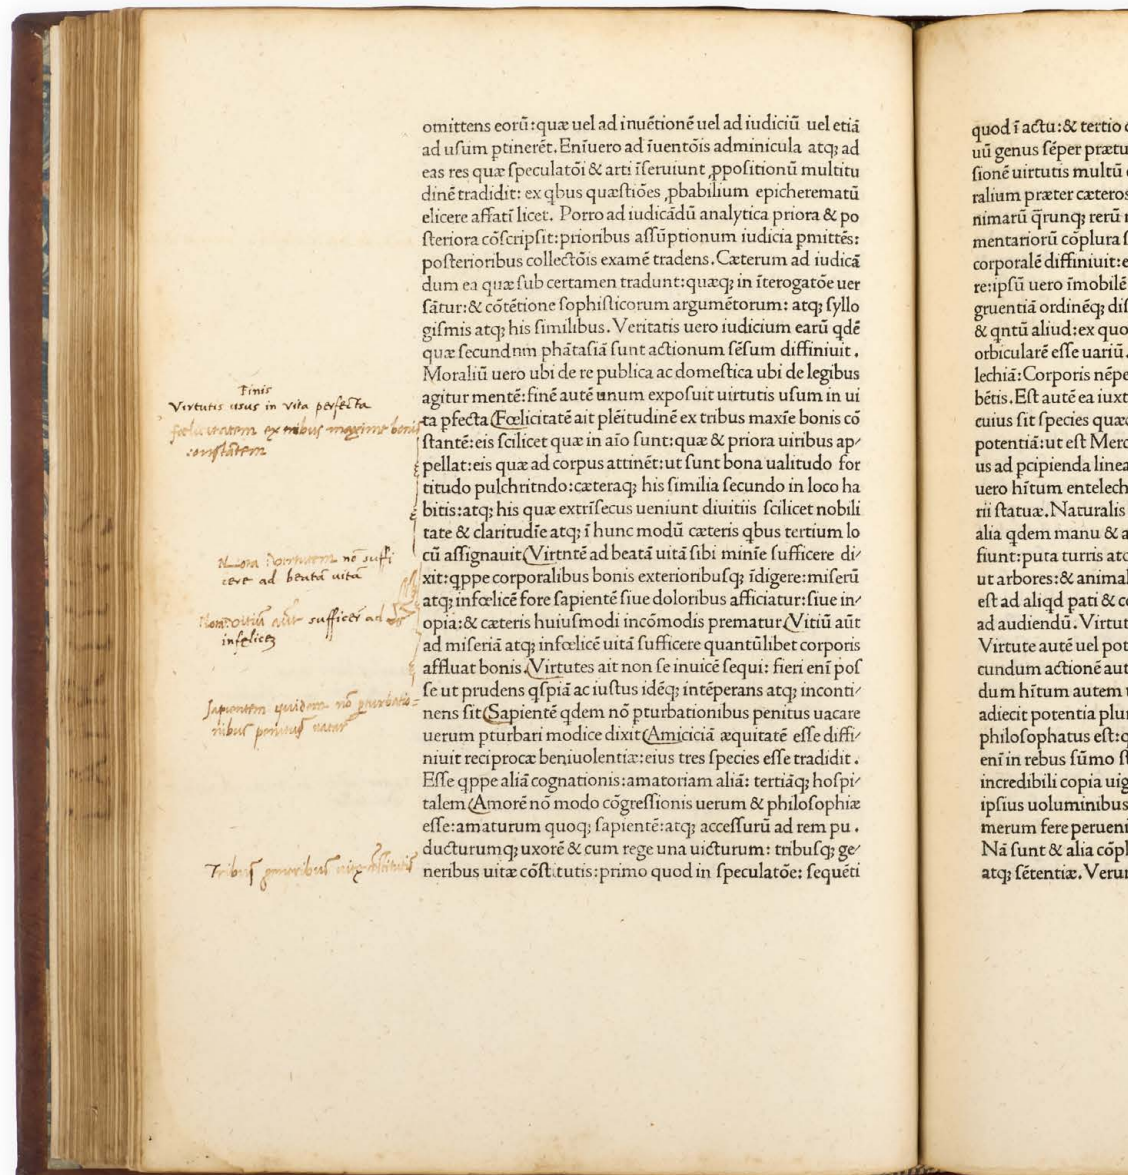 omittens eorū:quæ uel ad inuētionē uel ad iudiciū uel etiā
ad usum ptinerēt. Enīuero ad īuentōis adminicula atq; ad
eas res quæ speculatōi & arti īseruiunt ꝓpositionū multitu
dinē tradidit: ex qbus quæstiōes ꝓbabilium epicherematū
elicere affatī licet. Porro ad iudicādū analytica priora & po
steriora cōscripsit:prioribus assūptionum iudicia pmittēs:
posterioribus collectōis examē tradens. Cæterum ad iudicā
dum ea quæ sub certamen tradunt:quæq; in īterogatōe uer
sātur:& cōtētione sophisticorum argumētorum: atq; syllo
gismis atq; his similibus. Veritatis uero iudicium earū qdē
quæ secundnm phātasiā sunt actionum sēsum diffiniuit.
Moraliū uero ubi de re publica ac domestica ubi de legibus
agitur mentē:finē autē unum exposuit uirtutis usum in ui
ta pfecta(Fœlicitatē ait plēitudinē ex tribus maxīe bonis cō
stantē:eis scilicet quæ in aīo sunt:quæ & priora uiribus ap⸗
pellat:eis quæ ad corpus attinēt:ut sunt bona ualitudo for
titudo pulchritndo:cæteraq; his similia secundo in loco ha
bitis:atq; his quæ extrīsecus ueniunt diuitiis scilicet nobili
tate & claritudīe atq; ī hunc modū cæteris qbus tertium lo
cū assignauit(Virtntē ad beatā uitā sibi minīe sufficere di⸗
xit:qppe corporalibus bonis exterioribusq; īdigere:miserū
atq; infœlicē fore sapientē siue doloribus afficiatur:siue in⸗
opia:& cæteris huiusmodi incōmodis prematur(Vitiū aūt
ad miseriā atq; infœlicē uitā sufficere quantūlibet corporis
affluat bonis.(Virtutes ait non se inuicē sequi: fieri enī pos
se ut prudens qspiā ac iustus idēq; intēperans atq; inconti⸗
nens sit(Sapientē qdem nō pturbationibus penitus uacare
uerum pturbari modice dixit(Amiciciā æquitatē esse diffi⸗
niuit reciprocæ beniuolentiæ:eius tres species esse tradidit.
Esse qppe aliā cognationis:amatoriam aliā: tertiāq; hospi⸗
talem(Amorē nō modo cōgressionis uerum & philosophiæ
esse:amaturum quoq; sapientē:atq; accessurū ad rem pu.
ducturumq; uxorē & cum rege una uicturum: tribusq; ge⸗
neribus uitæ cōstitutis:primo quod in speculatōe: sequēti
Finis
Virtutis usus in vita perfecta
fœlicitatem ex tribus maxime bonis
constātem
nō suffi
cere ad beatā uitā
sufficer ad
infelicē
Sapientem quidem nō pturbatio⸗
nibus penitus uacat
Tribus generibus uitæ cōstitutis
quod ī actu:& tertio
uū genus sēper prætu
sionē uirtutis multū
ralium præter cæteros
nimarū qrunq; rerū
mentariorū cōplura
corporalē diffiniuit:e
re:ipsū uero īmobilē
gruentiā ordinēq; dis
& qntū aliud:ex quo
orbicularē esse uariū.
lechiā:Corporis nēpe
bētis. Est autē ea iuxt
cuius sit species quæ
potentiā:ut est Merc
us ad pcipienda linea
uero hītum entelech
rii statuæ. Naturalis
alia qdem manu & a
fiunt:puta turris atq
ut arbores:& animal
est ad aliqd pati & c
ad audiendū. Virtut
Virtute autē uel pot
cundum actionē aut
dum hītum autem
adiecit potentia plur
philosophatus est:q
enī in rebus sūmo st
incredibili copia uig
ipsius uoluminibus
merum fere perueni
Nā sunt & alia cōpl
atq; sētentiæ. Verum